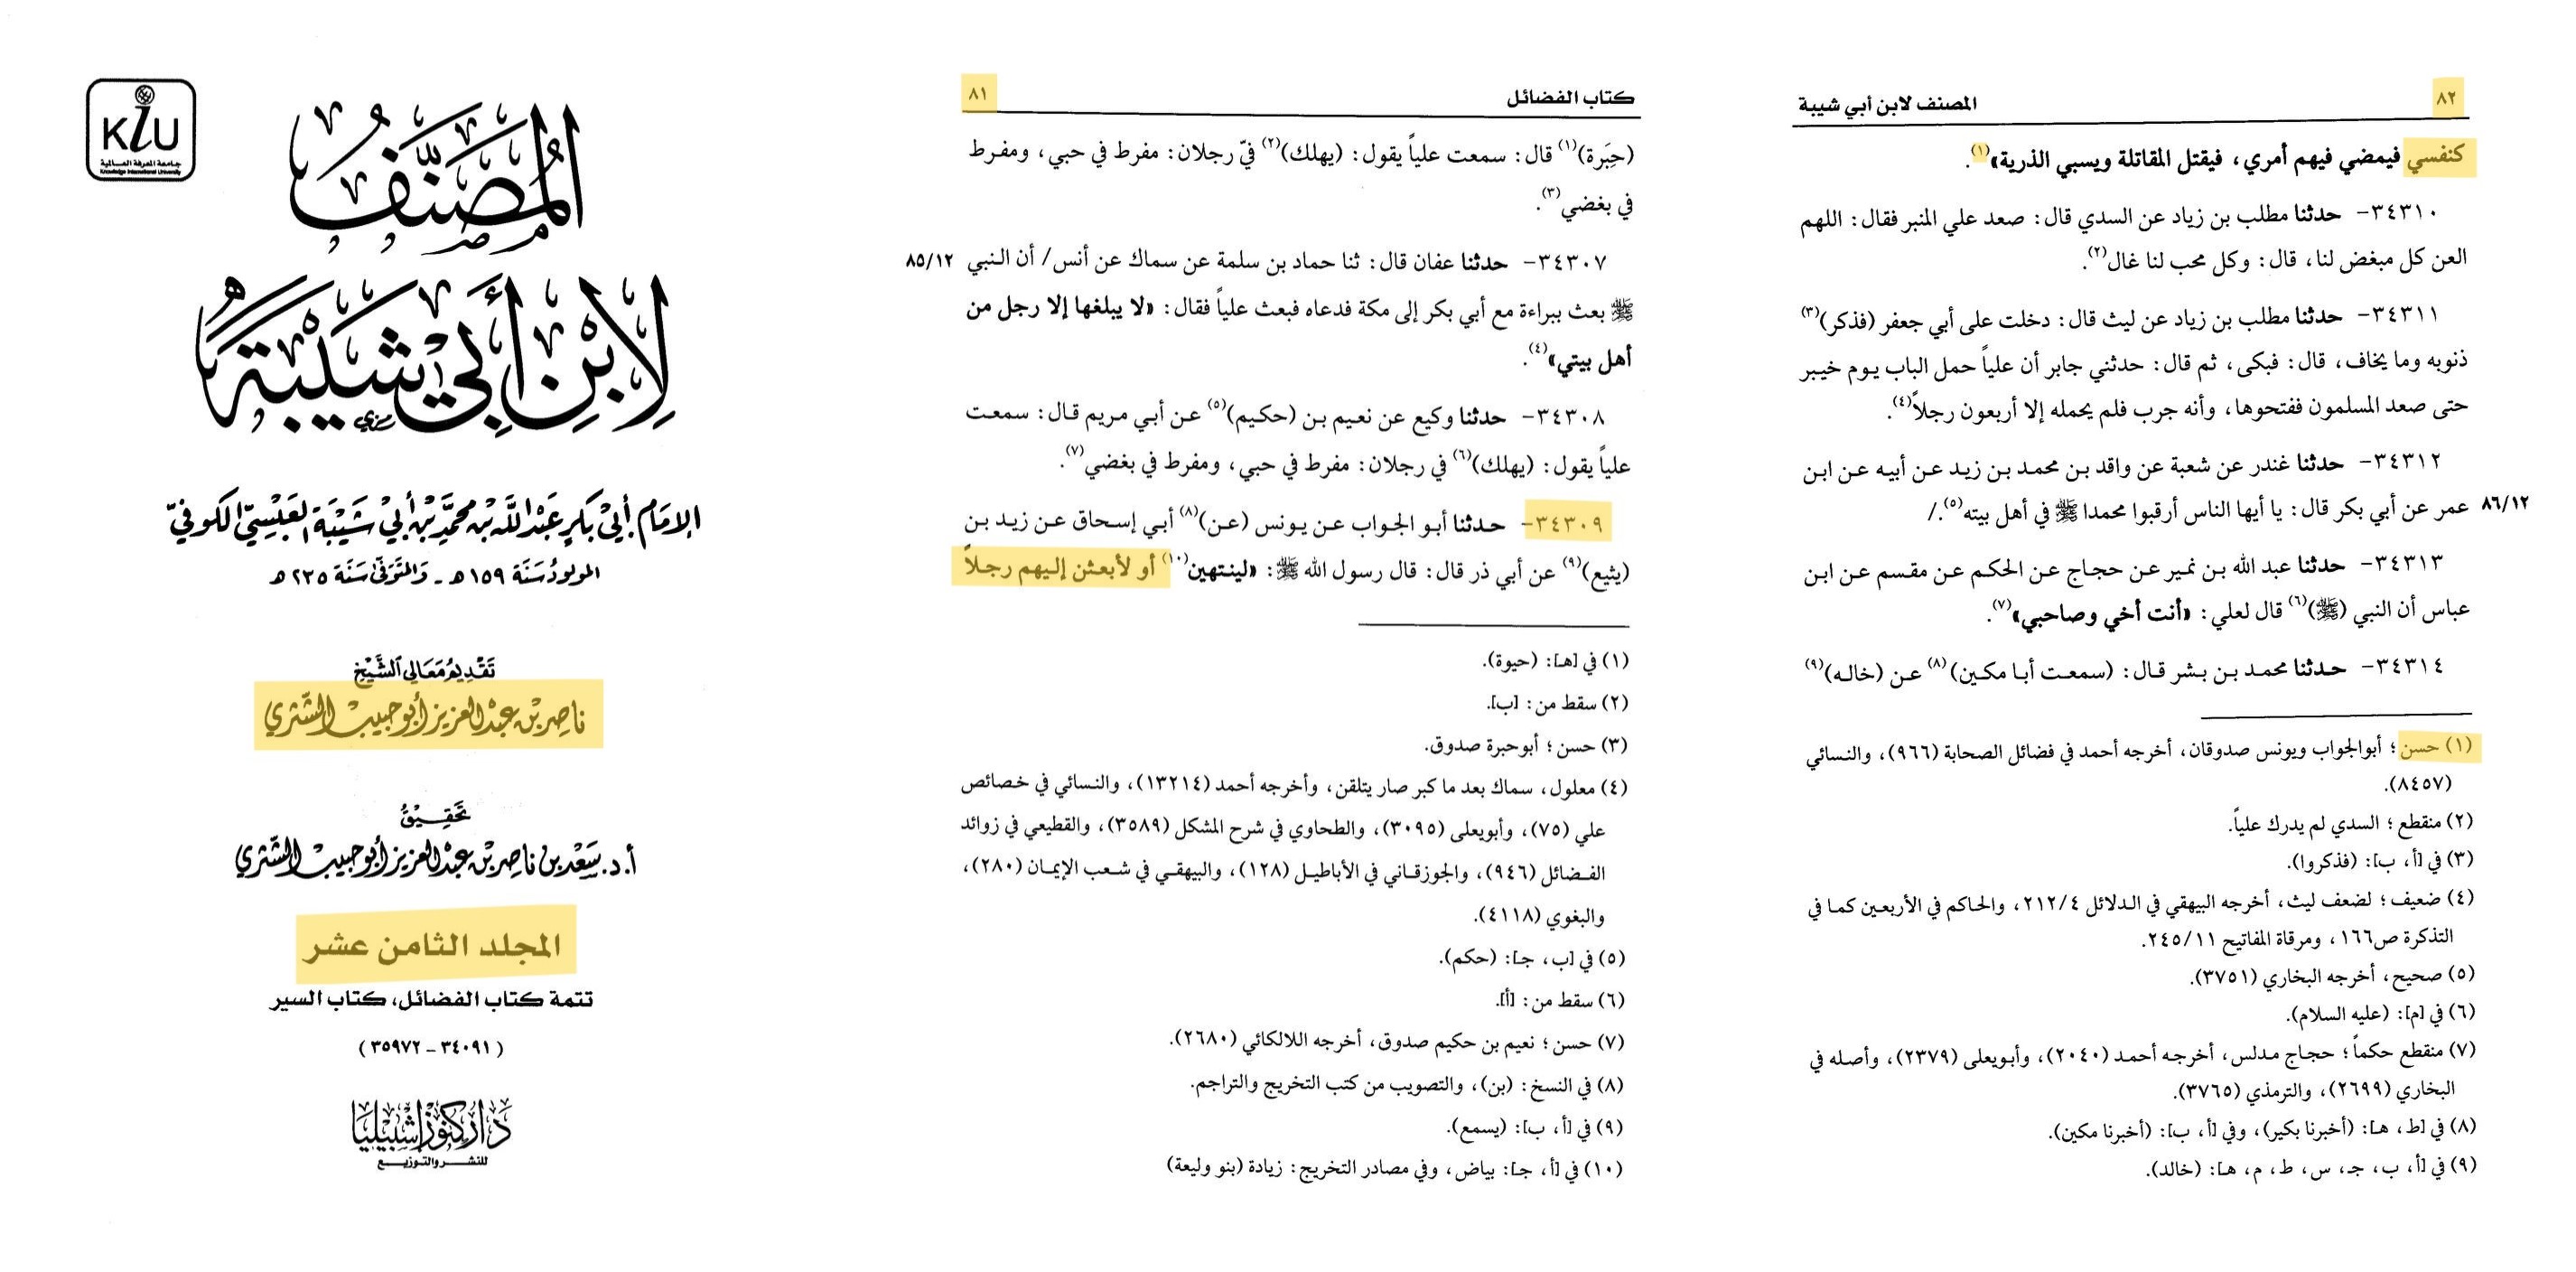 KiU
جامعة المعرفة العالمية
Knowledge International University
المُصَنَّفُ
لِابْنِ أَبِي شَيْبَةَ
الإمَام أَبِي بَكرٍ عَبْد اللَّه بْن محمَّد بْن أَبِي شَيْبَة العَبْسِيّ الكوفيّ
المولودُ سَنَة ١٥٩ هـ - وَالمتَوَفَّى سَنَة ٢٣٥ هـ
تَقْديمُ مَعَالِي الشَّيْخ
نَاصِر بْن عَبْد العَزيز أَبو حَبيب الشَّثري
تَحْقِيْقُ
أ.د. سَعْد بن نَاصِر بْن عَبْد العَزيز أَبو حَبيب الشَّثري
المجلد الثامن عشر
تتمة كتاب الفضائل، كتاب السير
( ٣٤٠٩١ - ٣٥٩٧٢ )
دَار كنُوز إشبيليَا
للنشر والتوزيع
كتاب الفضائل ٨١
(حِبَرة)(١) قال: سمعت علياً يقول: (يهلك)(٢) فيّ رجلان: مفرط في حبي، ومفرط
في بغضي(٣).
٣٤٣٠٧- حدثنا عفان قال: ثنا حماد بن سلمة عن سماك عن أنس/ أن النبي ٨٥/١٢
ﷺ بعث ببراءة مع أبي بكر إلى مكة فدعاه فبعث علياً فقال: «لا يبلغها إلا رجل من
أهل بيتي»(٤).
٣٤٣٠٨- حدثنا وكيع عن نعيم بن (حكيم)(٥) عن أبي مريم قال: سمعت
علياً يقول: (يهلك)(٦) في رجلان: مفرط في حبي، ومفرط في بغضي(٧).
٣٤٣٠٩- حدثنا أبو الجواب عن يونس (عن)(٨) أبي إسحاق عن زيد بن
(يثيع)(٩) عن أبي ذر قال: قال رسول الله ﷺ: «لينتهين(١٠) أو لأبعثن إليهم رجلاً
(١) في [هـ]: (حيوة).
(٢) سقط من: [ب].
(٣) حسن؛ أبوحبرة صدوق.
(٤) معلول، سماك بعد ما كبر صار يتلقن، وأخرجه أحمد (١٣٢١٤)، والنسائي في خصائص
علي (٧٥)، وأبويعلى (٣٠٩٥)، والطحاوي في شرح المشكل (٣٥٨٩)، والقطيعي في زوائد
الفضائل (٩٤٦)، والجوزقاني في الأباطيل (١٢٨)، والبيهقي في شعب الإيمان (٢٨٠)،
والبغوي (٤١١٨).
(٥) في [ب، جـ]: (حكم).
(٦) سقط من: [أ].
(٧) حسن؛ نعيم بن حكيم صدوق، أخرجه اللالكائي (٢٦٨٠).
(٨) في النسخ: (بن)، والتصويب من كتب التخريج والتراجم.
(٩) في [أ، ب]: (يسمع).
(١٠) في [أ، جـ]: بياض، وفي مصادر التخريج: زيادة (بنو وليعة)
٨٢ المصنف لابن أبي شيبة
كنفسي فيمضي فيهم أمري، فيقتل المقاتلة ويسبي الذرية»(١).
٣٤٣١٠- حدثنا مطلب بن زياد عن السدي قال: صعد علي المنبر فقال: اللهم
العن كل مبغض لنا، قال: وكل محب لنا غال(٢).
٣٤٣١١- حدثنا مطلب بن زياد عن ليث قال: دخلت على أبي جعفر (فذكر)(٣)
ذنوبه وما يخاف، قال: فبكى، ثم قال: حدثني جابر أن علياً حمل الباب يوم خيبر
حتى صعد المسلمون ففتحوها، وأنه جرب فلم يحمله إلا أربعون رجلاً(٤).
٣٤٣١٢- حدثنا غندر عن شعبة عن واقد بن محمد بن زيد عن أبيه عن ابن
عمر عن أبي بكر قال: يا أيها الناس أرقبوا محمدا ﷺ في أهل بيته(٥)./ ٨٦/١٢
٣٤٣١٣- حدثنا عبد الله بن نمير عن حجاج عن الحكم عن مقسم عن ابن
عباس أن النبي (ﷺ)(٦) قال لعلي: «أنت أخي وصاحبي»(٧).
٣٤٣١٤- حدثنا محمد بن بشر قال: (سمعت أبا مكين)(٨) عن (خاله)(٩)
(١) حسن؛ أبوالجواب ويونس صدوقان، أخرجه أحمد في فضائل الصحابة (٩٦٦)، والنسائي
(٨٤٥٧).
(٢) منقطع؛ السدي لم يدرك علياً.
(٣) في [أ، ب]: (فذكروا).
(٤) ضعيف؛ لضعف ليث، أخرجه البيهقي في الدلائل ٢١٢/٤، والحاكم في الأربعين كما في
التذكرة ص١٦٦، ومرقاة المفاتيح ٢٤٥/١١.
(٥) صحيح، أخرجه البخاري (٣٧٥١).
(٦) في [م]: (عليه السلام).
(٧) منقطع حكماً؛ حجاج مدلس، أخرجه أحمد (٢٠٤٠)، وأبويعلى (٢٣٧٩)، وأصله في
البخاري (٢٦٩٩)، والترمذي (٣٧٦٥).
(٨) في [ط، هـ]: (أخبرنا بكير)، وفي [أ، ب]: (أخبرنا مكين).
(٩) في [أ، ب، جـ، س، ط، م، هـ]: (خالد).